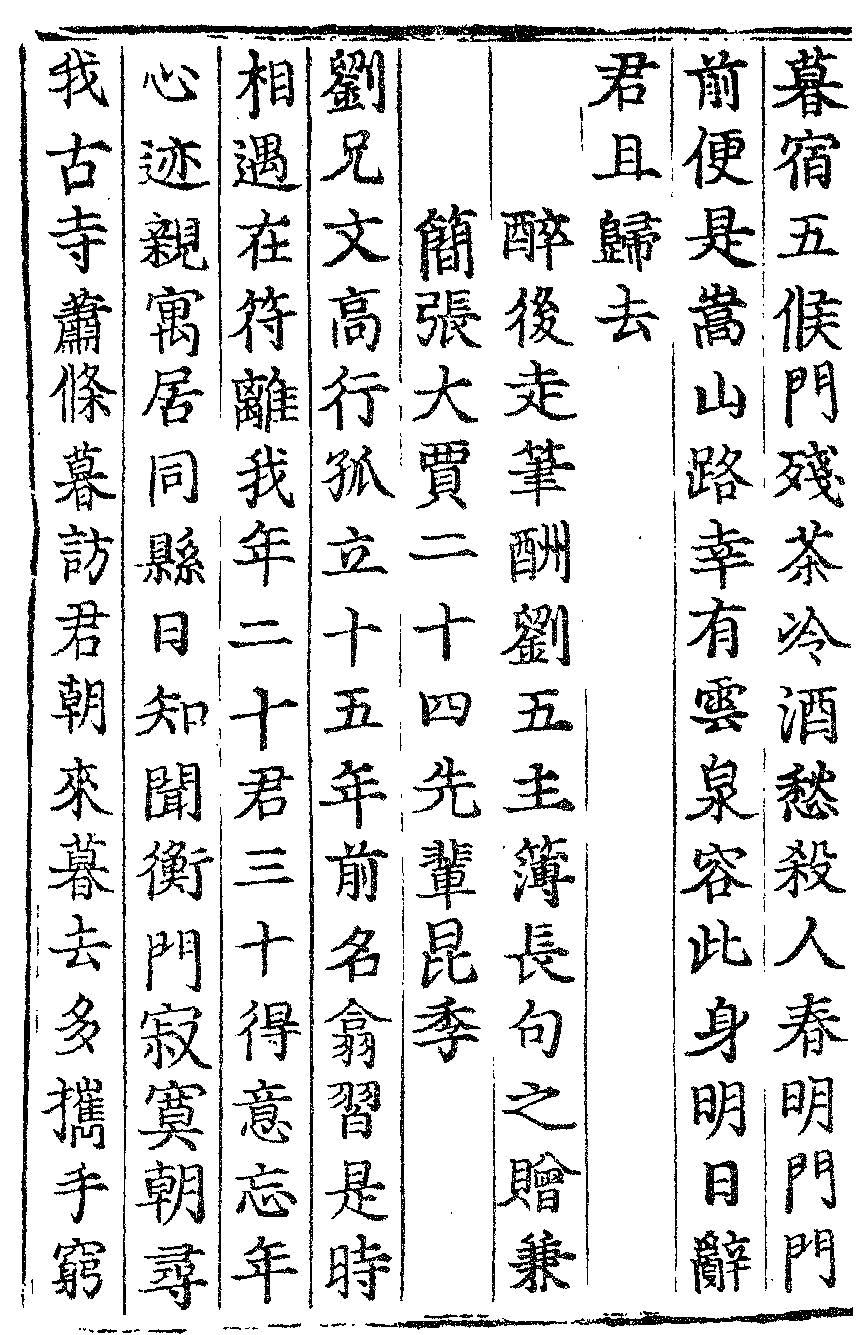 暮宿五候門殘茶冷酒愁殺人春明門門
前便是嵩山路幸有雲泉容此身明日辭
君且歸去
醉後走筆酬劉五主簿長句之贈兼
簡張大賈二十四先輩昆季
劉兄文高行孤立十五年前名翕習是時
相遇在符離我年二十君三十得意忘年
心迹親寓居同縣日知聞衡門寂寞朝尋
我古寺蕭條暮訪君朝來暮去多攜手窮